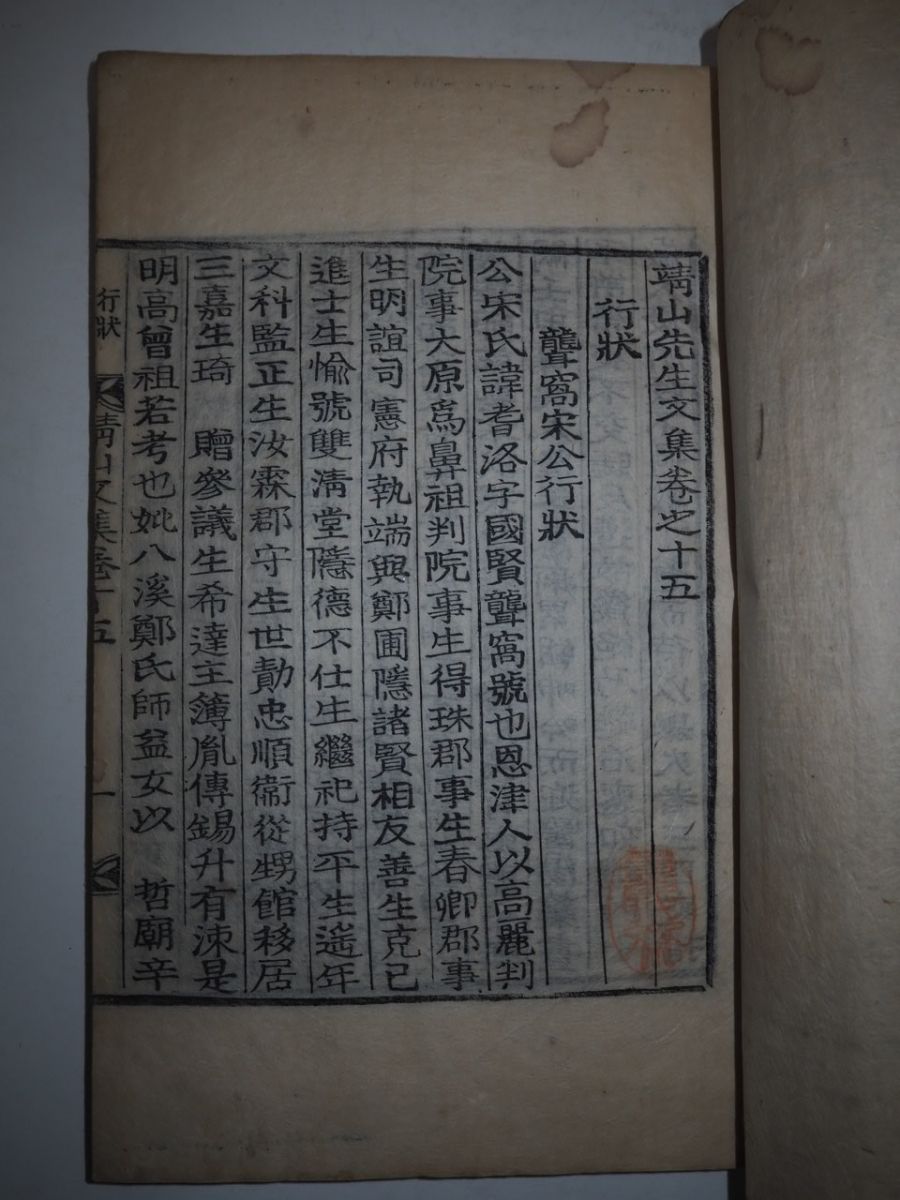 靖山先生文集卷之十五
行狀
聾窩宋公行狀
公宋氏諱耆洛字國賢聾窩號也恩津人以高麗判
院事大原爲鼻祖判院事生得珠郡事生春卿郡事
生明誼司憲府執端與鄭圃隱諸賢相友善生克己
進士生愉號雙淸堂隱德不仕生繼祀持平生遙年
文科監正生汝霖郡守生世勣忠順衛從甥館移居
三嘉生琦 贈參議生希達主簿胤傳錫升有涑是
明高曾祖若考也妣八溪鄭氏師益女以 哲廟辛
行狀
靖山文集卷十五
一